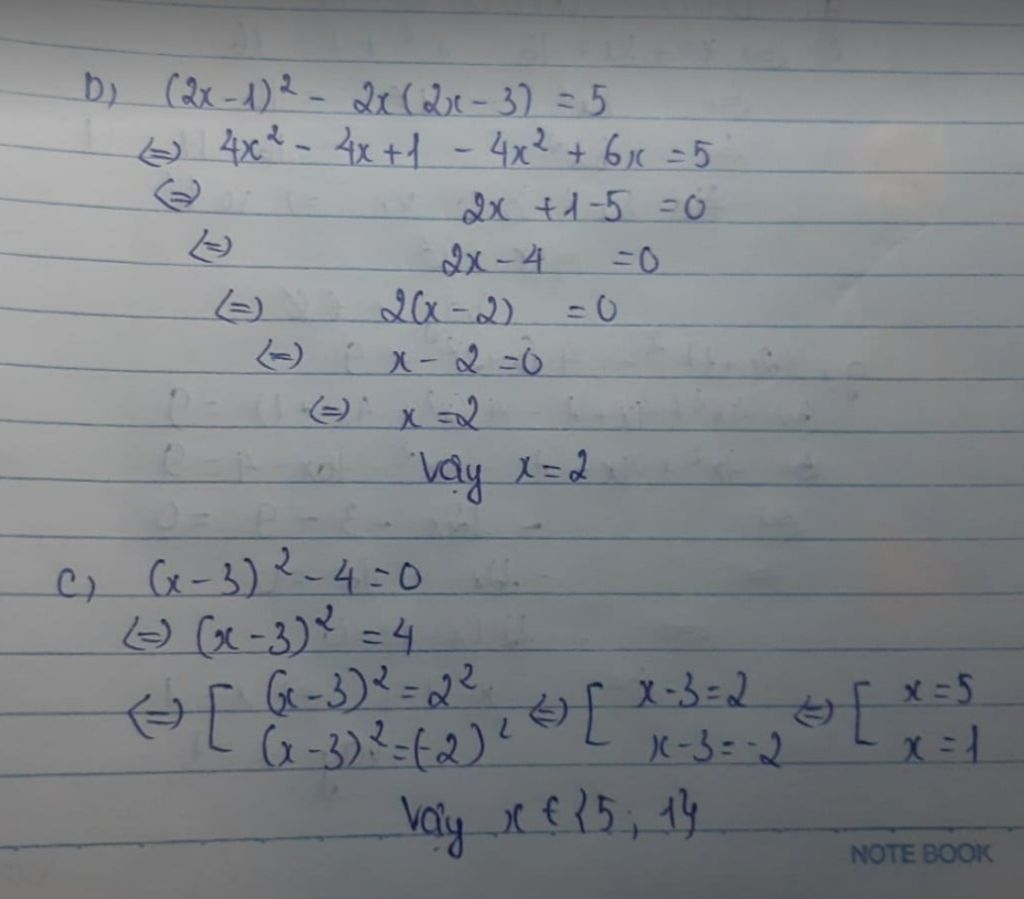 b) (2x-1)² - 2x(2x-3) = 5
⇔ 4x² - 4x+1 - 4x² + 6x = 5
⇔ 2x +1-5 =0
⇔ 2x-4 =0
⇔ 2(x-2) =0
⇔ x-2 =0
⇔ x=2
Vậy x=2
c) (x-3)² -4=0
⇔ (x-3)² =4
⇔ [ (x-3)² = 2² ⇔ [ x-3=2 ⇔ [ x=5
(x-3)² =(-2)² x-3=-2 x=1
Vậy x ∈ {5; 1}
NOTE BOOK